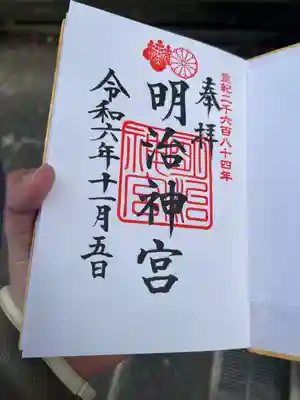 皇紀二千六百八十四年
奉拝
明治神宮
令和六年十一月五日
明治神宮